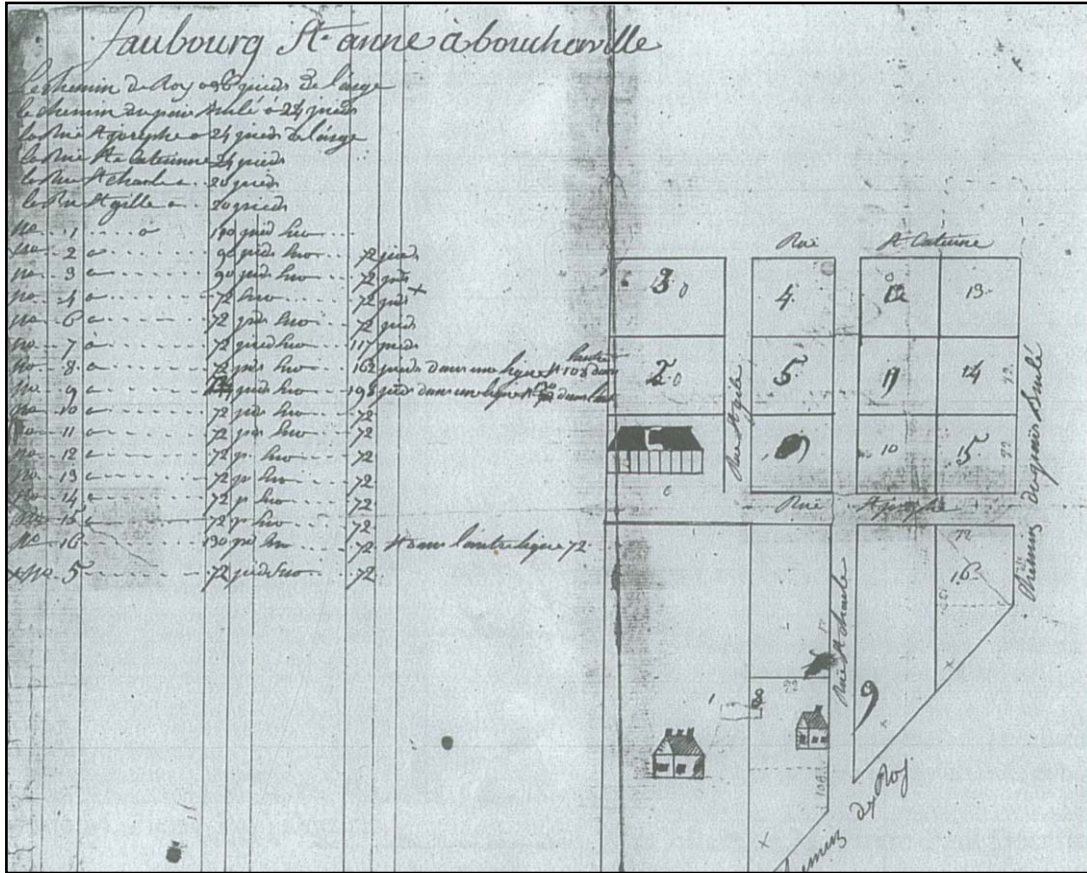 faubourg St. anne a boucherville
Le Chemin de Roy a 36 pieds De large
le chemin du pais brulé a 24 pieds
la Rue St josephe a 24 pieds De large
la Rue Ste Caterinne 24 pieds
la Rue St charle a 20 pieds
la Rue St gille a 20 pieds
No 1 a 190 pied Sur
No 2 a 90 pieds Sur 72 pieds
no 3 a 90 pieds Sur 72 pieds
no 4 a 72 Sur 72 pieds x
no 6 a 72 pieds Sur 72 pieds
no 7 a 72 pieds Sur 117 pieds
no 8 a 72 pieds Sur 162 pieds dans une ligne et 108 dans lautre
no 9 a pieds Sur 198 pied dans une ligne et dans
no 10 a 72 pieds Sur 72
no 11 a 72 pies Sur 72
no 12 a 72 p Sur 72
no 13 a 72 p Sur 72
no 14 a 72 p Sur 72
no 15 a 72 p Sur 72
No 16 130 pie Sur 72 et dans lautre ligne 72
x no 5 72 pieds Sur 72
Rue St Caterine
3 0
4
12
13
2 0
5
11
14
72
Rue St gile
10
15
72
Chemin du pais Brulé
Rue St josephe
72
16
Rue St charle
1
8
72
9
108
x
x
Chemin de Roy